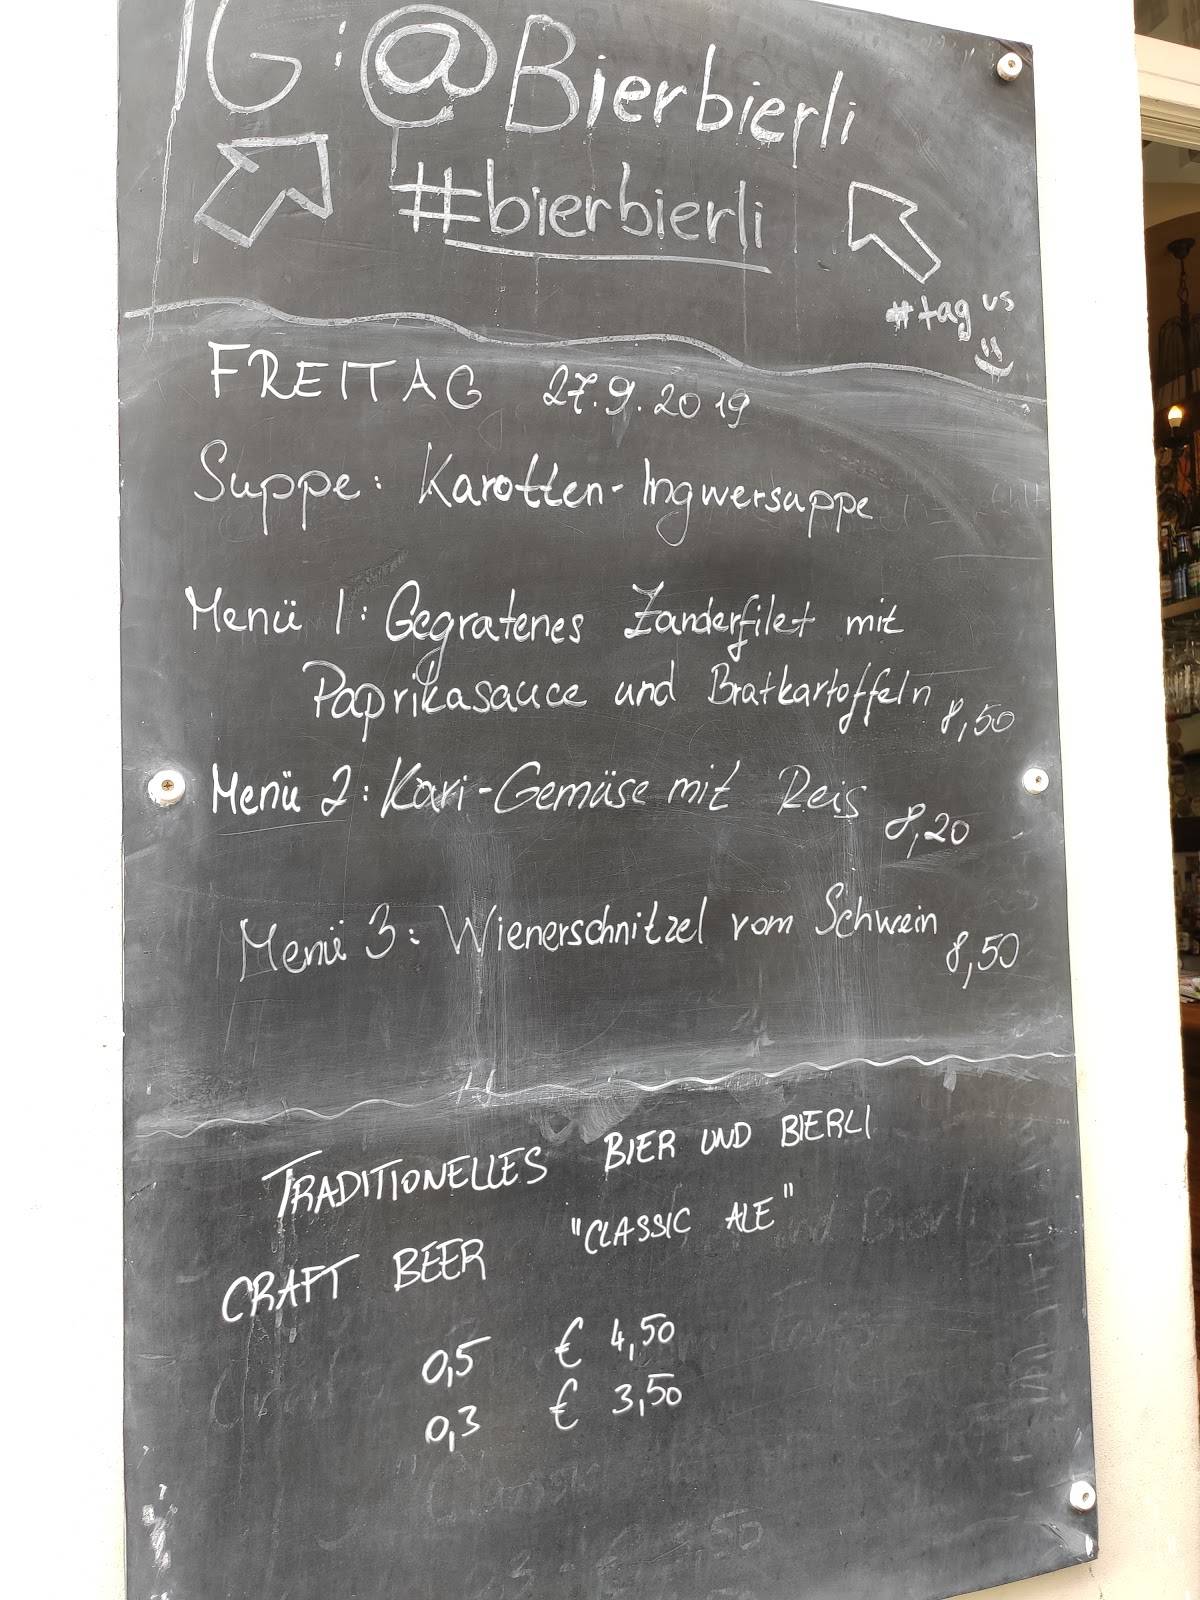 IG: @Bierbierli
#bierbierli
#tag us
FREITAG 27.9.2019
Suppe: Karotten-Ingwersuppe
Menü 1: Gegratenes Zanderfilet mit
Paprikasauce und Bratkartoffeln 8,50
Menü 2: Kari-Gemüse mit Reis 8,20
Menü 3: Wienerschnitzel vom Schwein 8,50
TRADITIONELLES BIER UND BIERLI
CRAFT BEER "CLASSIC ALE"
0,5 € 4,50
0,3 € 3,50